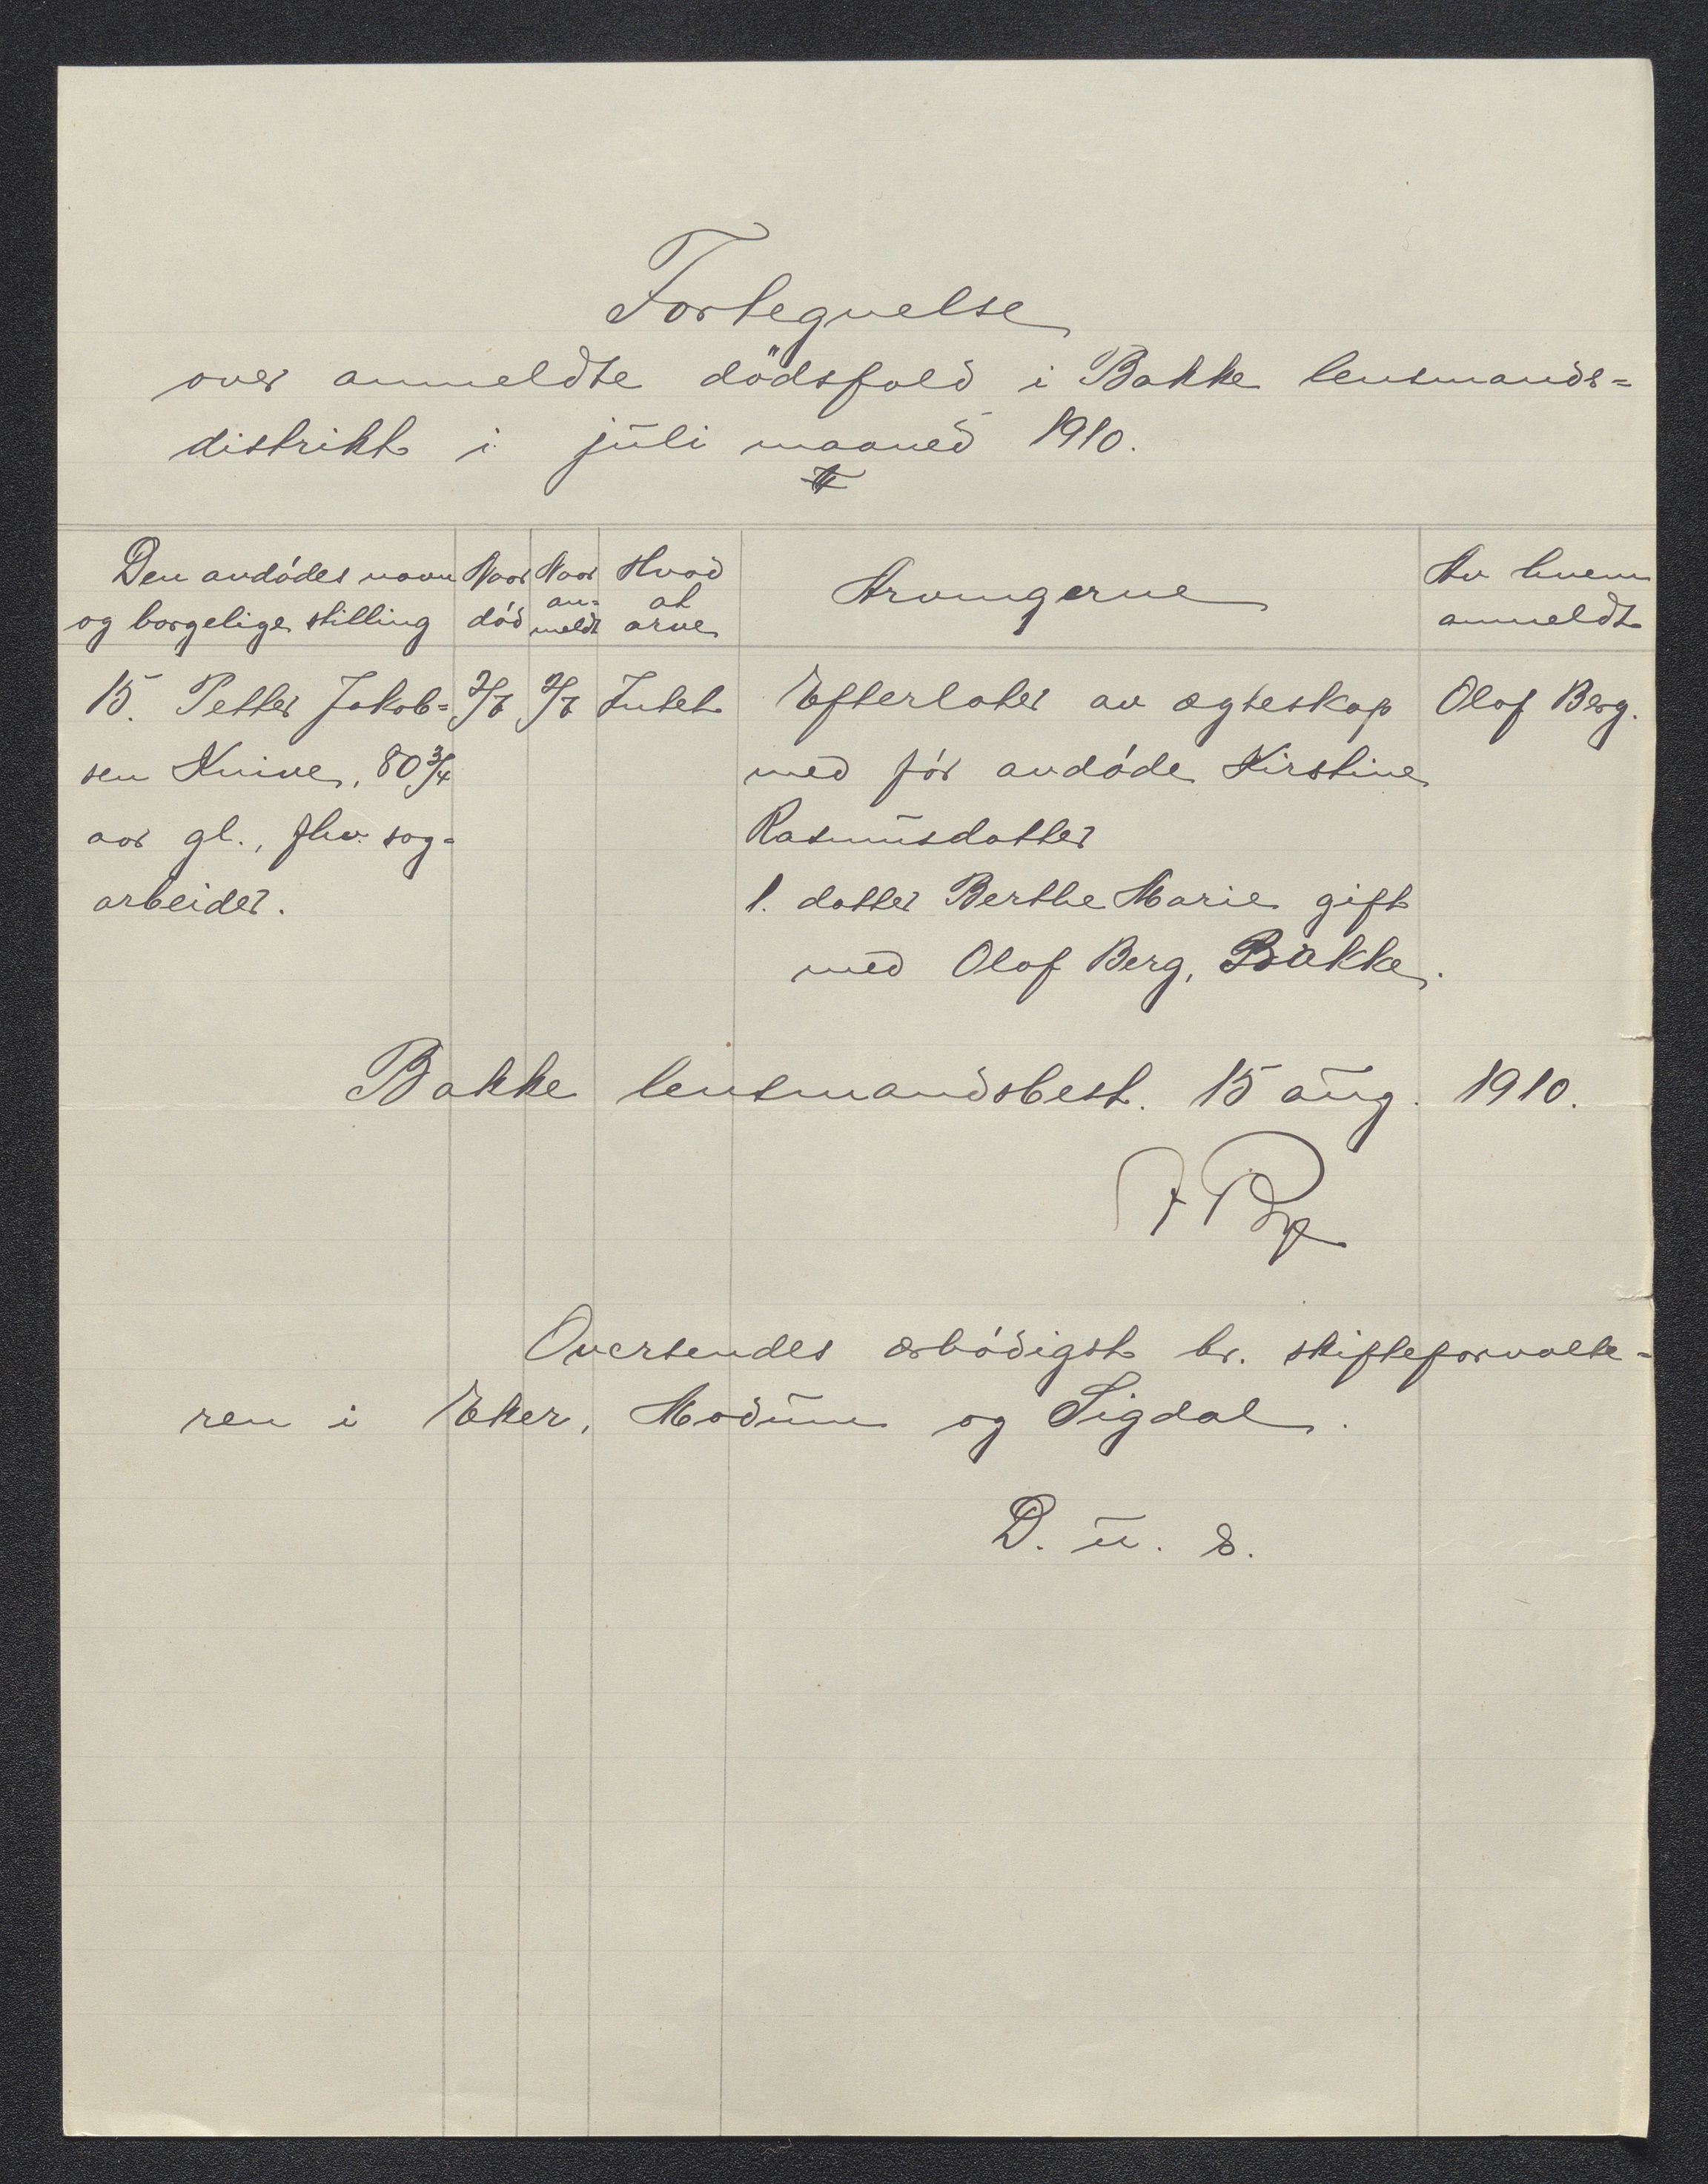 Fortegnelse
over anmeldte dödsfald i Bakke lensmands=
distrikt i juli maaned 1910.
Den avdódes navn
og borgelige stilling
Naar
död
Naar
an=
meldt
Hvad
at
arve
Arvingerne
Av hvem
anmeldt
15. Petter Jakob=
sen Knive, 80 3/4
aar gl., fhv. sag=
arbeider.
2/7
2/7
Intet
Efterlater av ægteskap
med för avdöde Kirstine
Rasmusdatter
1. datter Berthe Marie gift
med Olaf Berg, Bakke.
Olaf Berg.
Bakke lensmandsbest. 15 aug. 1910.
Oversendes ærbödigst hr. skifteforvalte=
ren i Eker, Modum og Sigdal.
D. u. s.